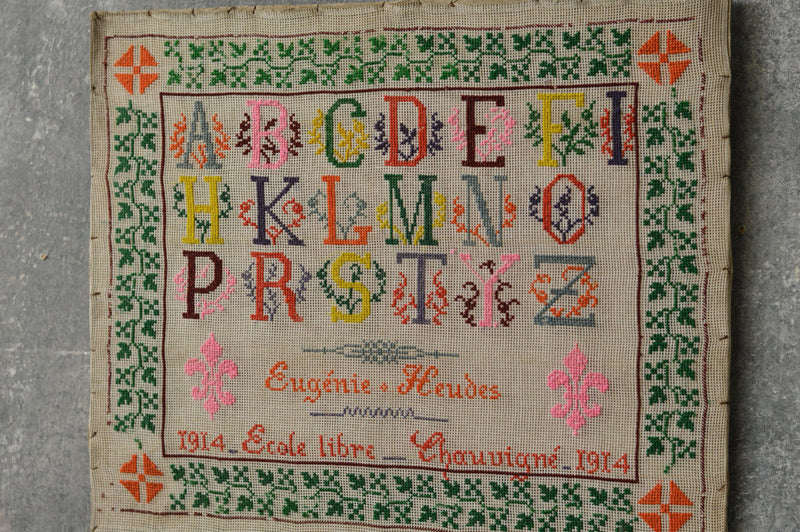 A B C D E F I
H K L M N O
P R S T Y Z
Eugénie + Heudes
1914 _ Ecole libre _ Chauvigné _ 1914